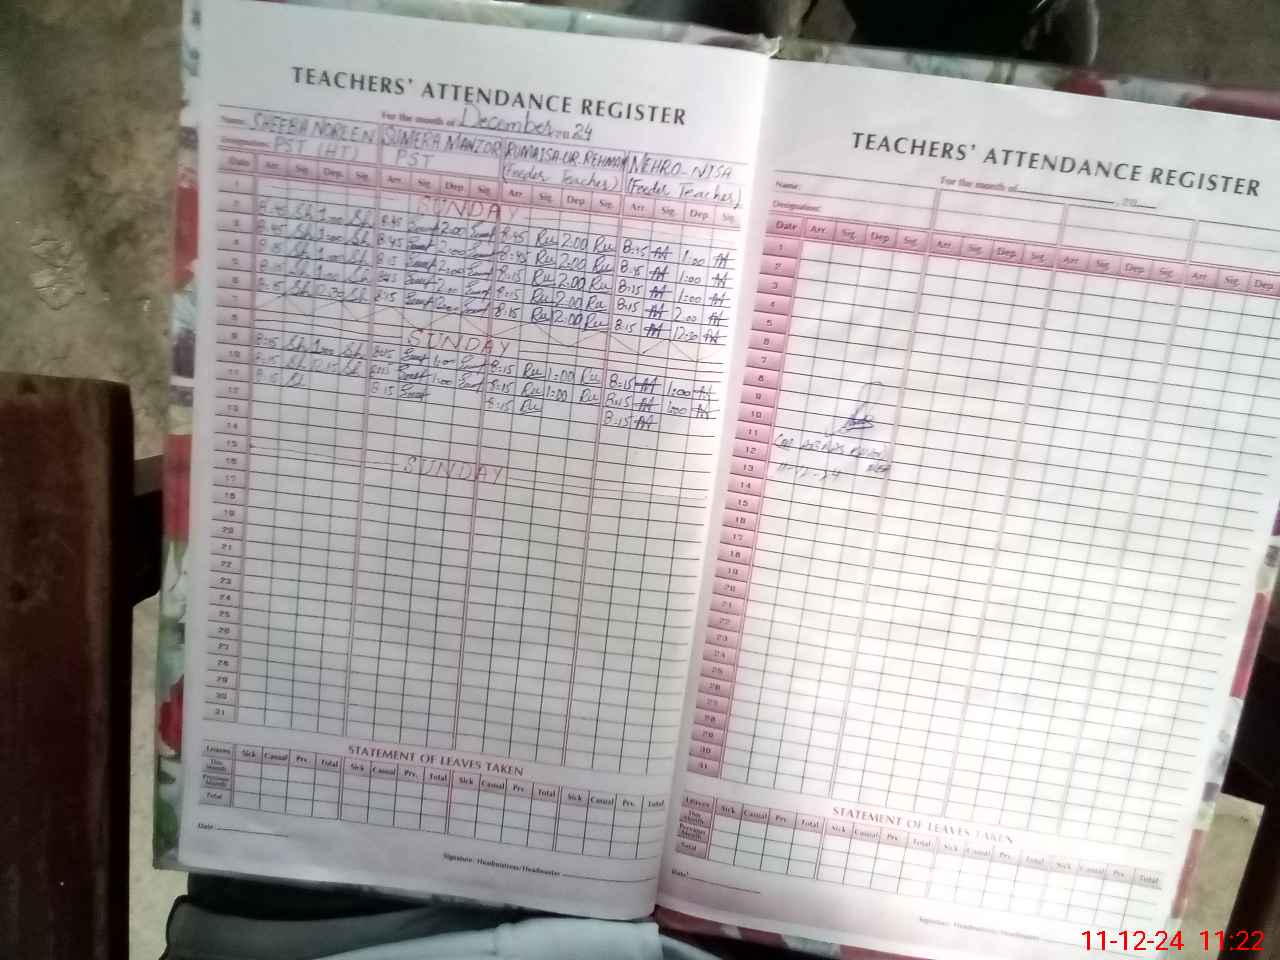 TEACHERS' ATTENDANCE REGISTER
For the month of December 20 24
Name: SHEEBA NOREEN SUMERA MANZOR RUMAISA-UR-REHMAN NEHRO-NISA
Designation: PST (HT) PST (Feeder Teacher) (Feeder Teacher)
Date Arr. Sig. Dep. Sig. Arr. Sig. Dep. Sig. Arr. Sig. Dep. Sig. Arr. Sig. Dep. Sig.
1 SUNDAY
2 8:45 Sh 1:00 Sh 8:45 2:00 8:45 Ru 2:00 Ru 8:45 1:00
3 8:45 Sh 1:00 Sh 8:45 2:00 8:45 Ru 2:00 Ru 8:45 1:00
4 8:15 Sh 1:00 Sh 8:15 2:00 8:15 Ru 2:00 Ru 8:15 1:00
5 8:15 Sh 1:00 Sh 8:15 2:00 8:15 Ru 2:00 Ru 8:15 2:00
6 8:15 Sh 12:30 Sh 8:15 2:00 8:15 Ru 2:00 Ru 8:15 12:30
7
8 SUNDAY
9 8:15 Sh 1:00 Sh 8:15 1:00 8:15 Ru 1:00 Ru 8:15 1:00
10 8:15 Sh Sh 8:15 1:00 8:15 Ru 1:00 Ru 8:15 1:00
11 8:15 8:15 8:15 Ru 8:15
12
13
14
15 SUNDAY
16
17
18
19
20
21
22
23
24
25
26
27
28
29
30
31
STATEMENT OF LEAVES TAKEN
Leaves Sick Casual Prv. Total Sick Casual Prv. Total Sick Casual Prv. Total Sick Casual Prv. Total
This Month
Previous Month
Total
Date:
Signature: Headmistress/Headmaster
TEACHERS' ATTENDANCE REGISTER
For the month of , 20
Name:
Designation:
Date Arr. Sig. Dep. Sig. Arr. Sig. Dep. Sig. Arr. Sig. Dep. Sig. Arr. Sig. Dep.
1
2
3
4
5
6
7
8
9
10
11
12
13
14
15
16
17
18
19
20
21
22
23
24
25
26
27
28
29
30
31
11-12-24
STATEMENT OF LEAVES TAKEN
Leaves Sick Casual Prv. Total Sick Casual Prv. Total Sick Casual Prv. Total Sick Casual Prv. Total
This Month
Previous Month
Total
Date:
Signature: Headmistress/Headmaster
11-12-24 11:22